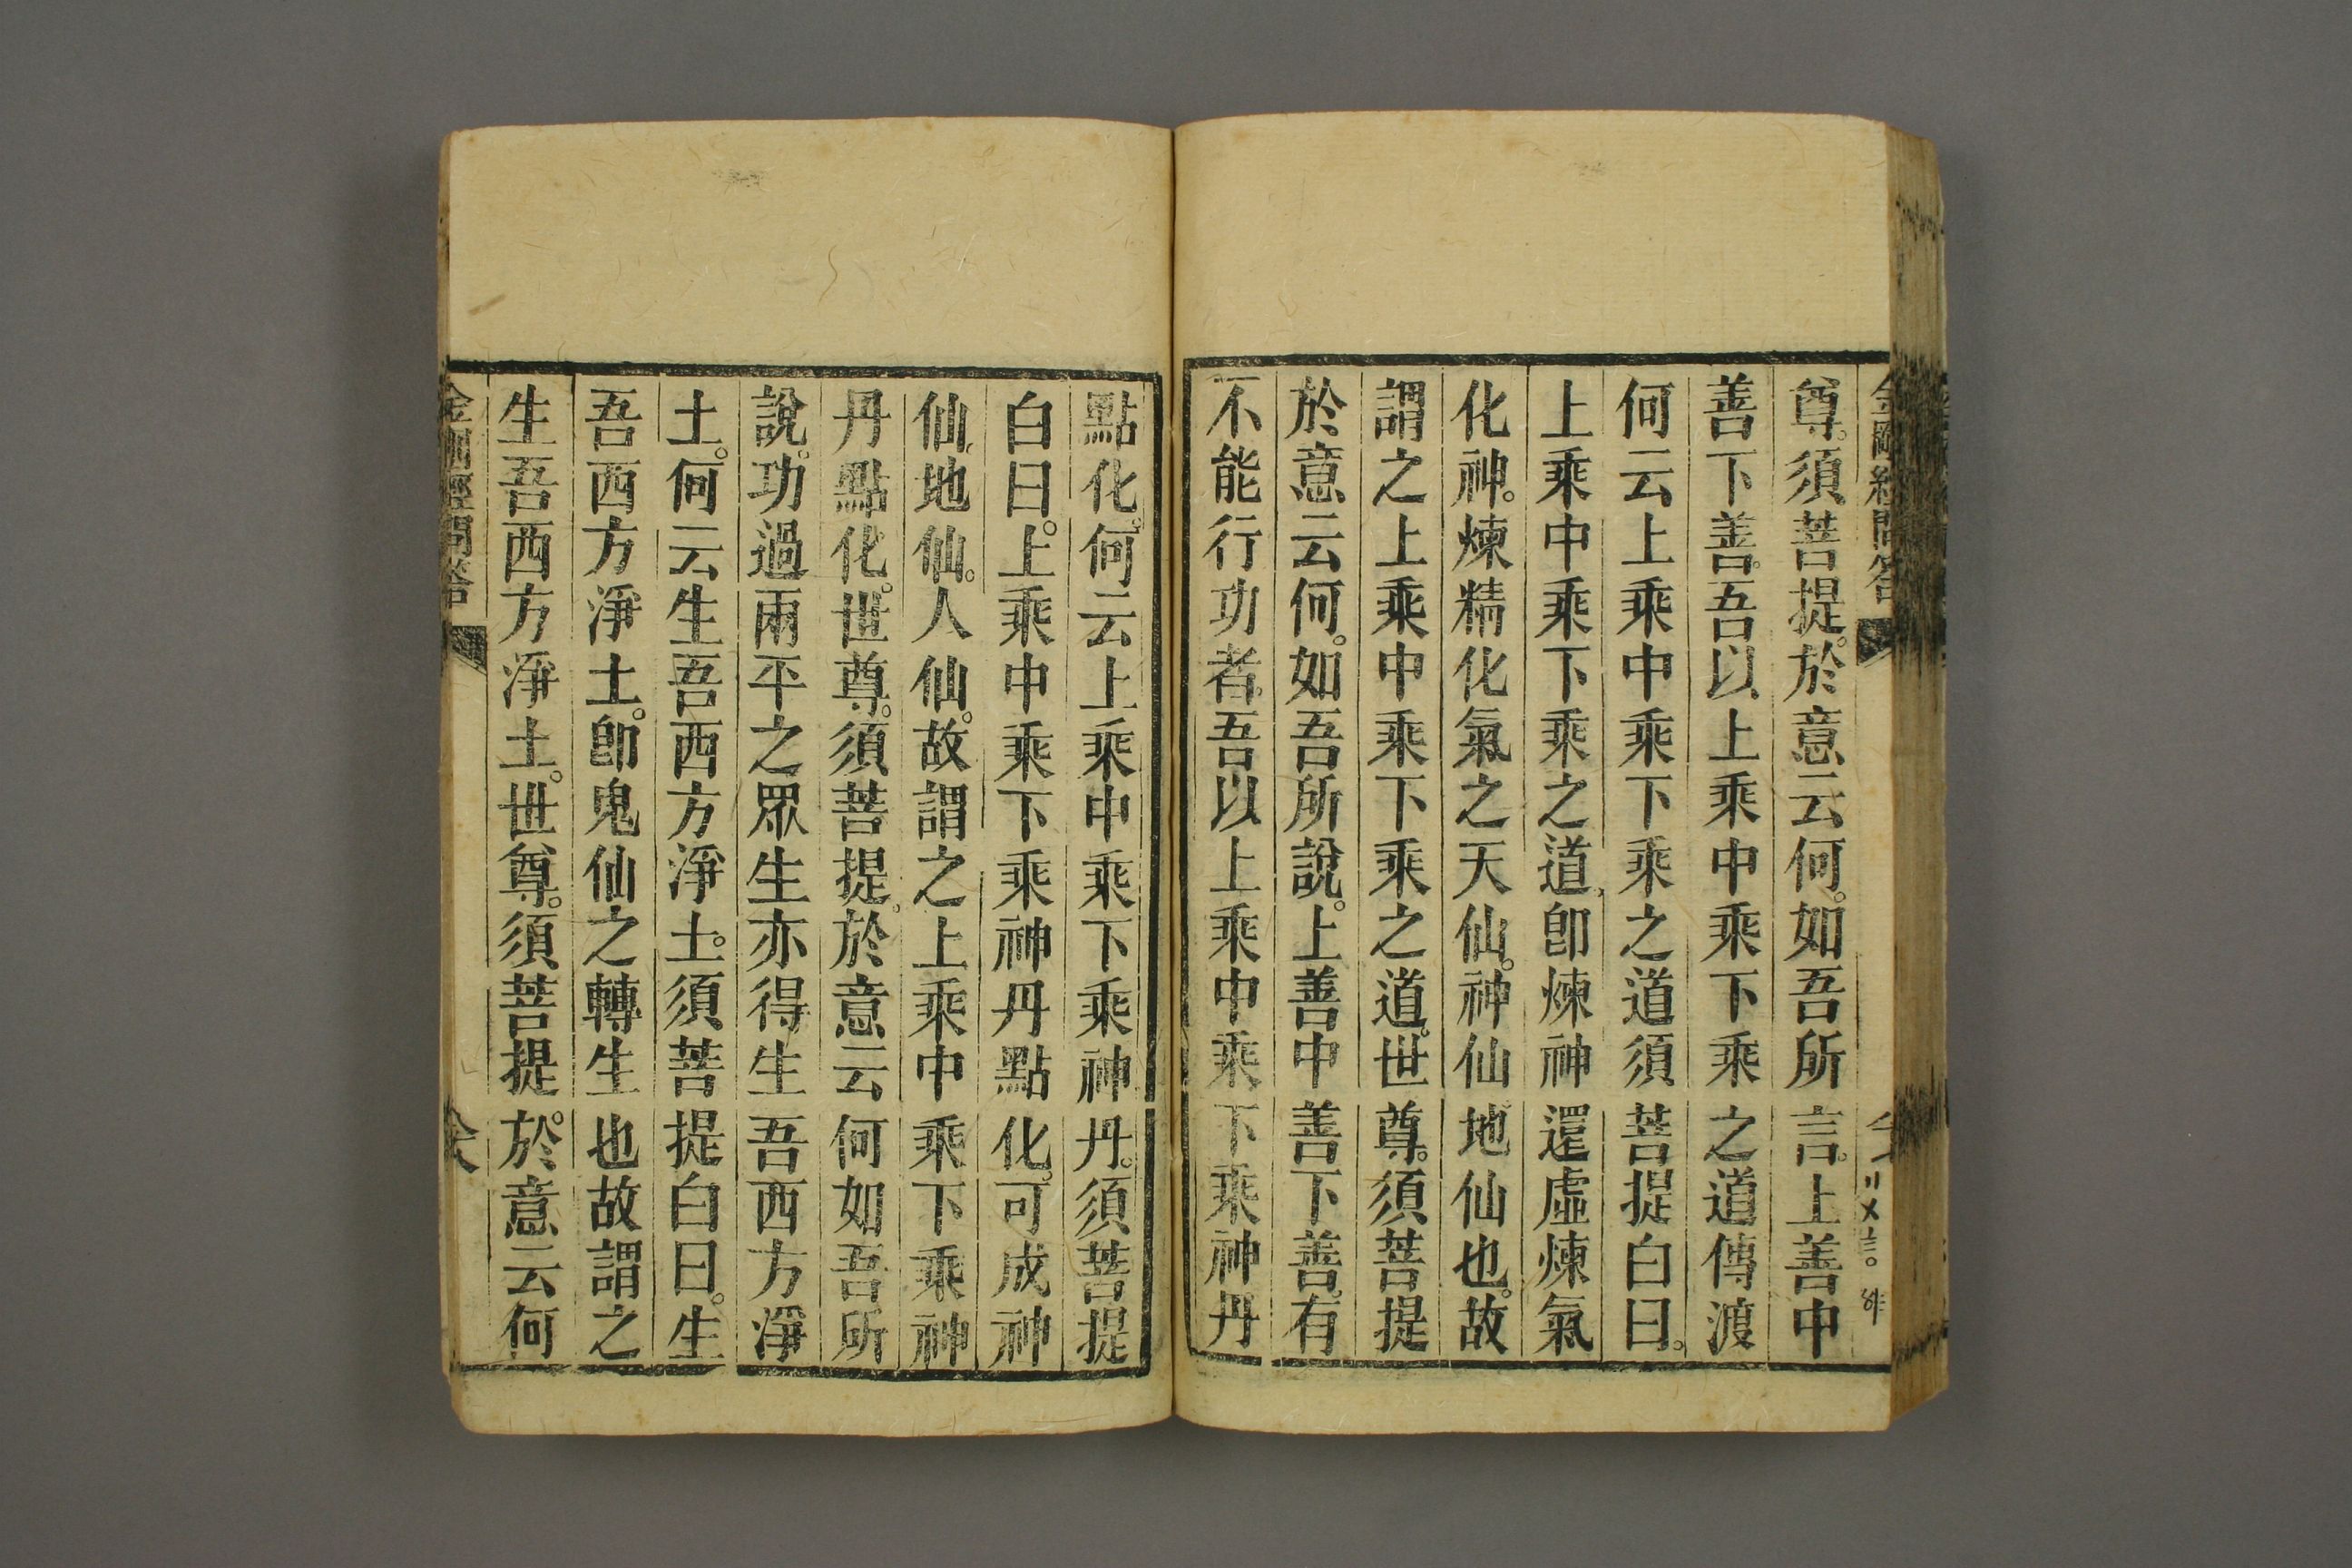 金剛經問答
尊。須菩提。於意云何。如吾所言。上善中
善下善。吾以上乘中乘下乘之道傳渡
何云上乘中乘下乘之道須菩提白曰。
上乘中乘下乘之道，卽煉神還虛煉氣
化神。煉精化氣之天仙。神仙地仙也。故
謂之上乘中乘下乘之道。世尊。須菩提
於意云何。如吾所說。上善中善下善。有
不能行功者。吾以上乘中乘下乘神丹
點化。何云上乘中乘下乘神丹。須菩提
白曰。上乘中乘下乘神丹點化。可成神
仙。地仙。人仙。故謂之上乘中乘下乘神
丹點化。世尊。須菩提。於意云何如吾所
說。功過兩平之眾生亦得生吾西方淨
土。何云生吾西方淨土。須菩提白曰。生
吾西方淨土。卽鬼仙之轉生也故謂之
生吾西方淨土。世尊。須菩提。於意云何
金剛經問答